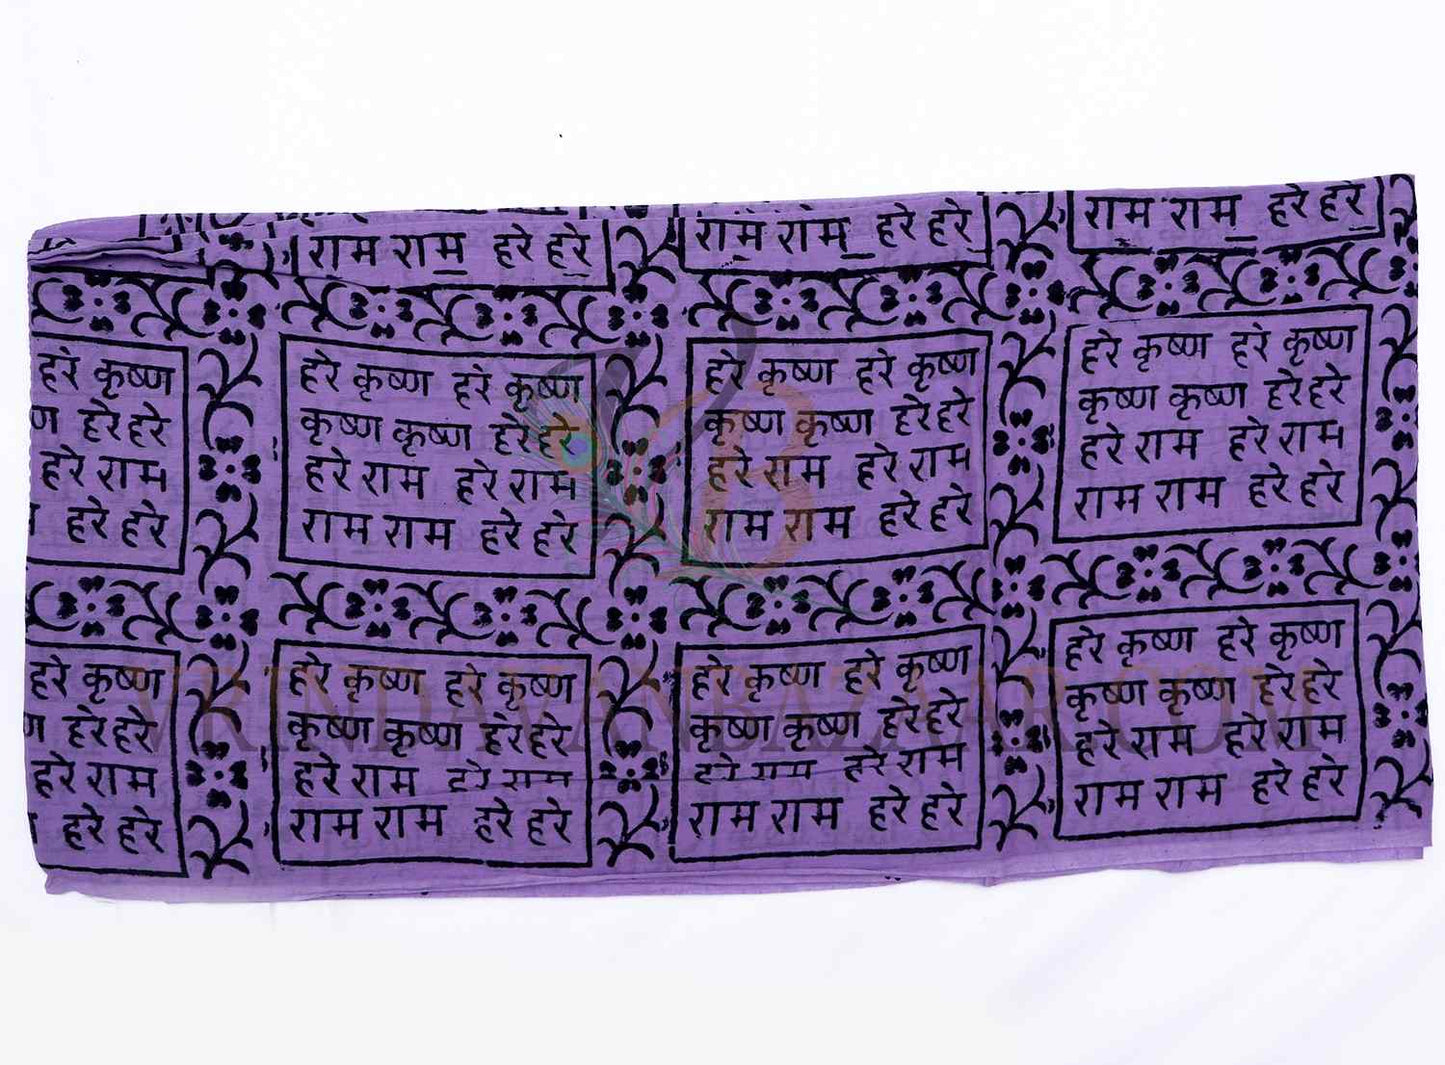 राम राम हरे हरे
राम राम हरे हरे
राम राम हरे हरे
हरे कृष्ण
हरे हरे
हरे राम
हरे हरे
हरे कृष्ण हरे कृष्ण
कृष्ण कृष्ण हरे हरे
हरे राम हरे राम
राम राम हरे हरे
हरे कृष्ण हरे कृष्ण
कृष्ण कृष्ण हरे हरे
हरे राम हरे राम
राम राम हरे हरे
हरे कृष्ण हरे कृष्ण
कृष्ण कृष्ण हरे हरे
हरे राम हरे राम
राम राम हरे हरे
हरे कृष्ण
हरे हरे
हरे राम
हरे हरे
हरे कृष्ण हरे कृष्ण
कृष्ण कृष्ण हरे हरे
हरे राम हरे राम
राम राम हरे हरे
हरे कृष्ण हरे कृष्ण
कृष्ण कृष्ण हरे हरे
हरे राम हरे राम
राम राम हरे हरे
हरे कृष्ण हरे कृष्ण
कृष्ण कृष्ण हरे हरे
हरे राम हरे राम
राम राम हरे हरे
VRINDAVANBAZAAR.COM